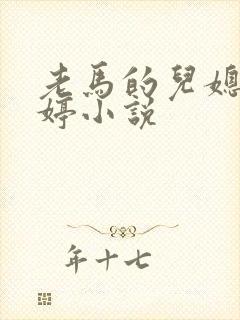 老馬的兒媳
婷小説
年十七